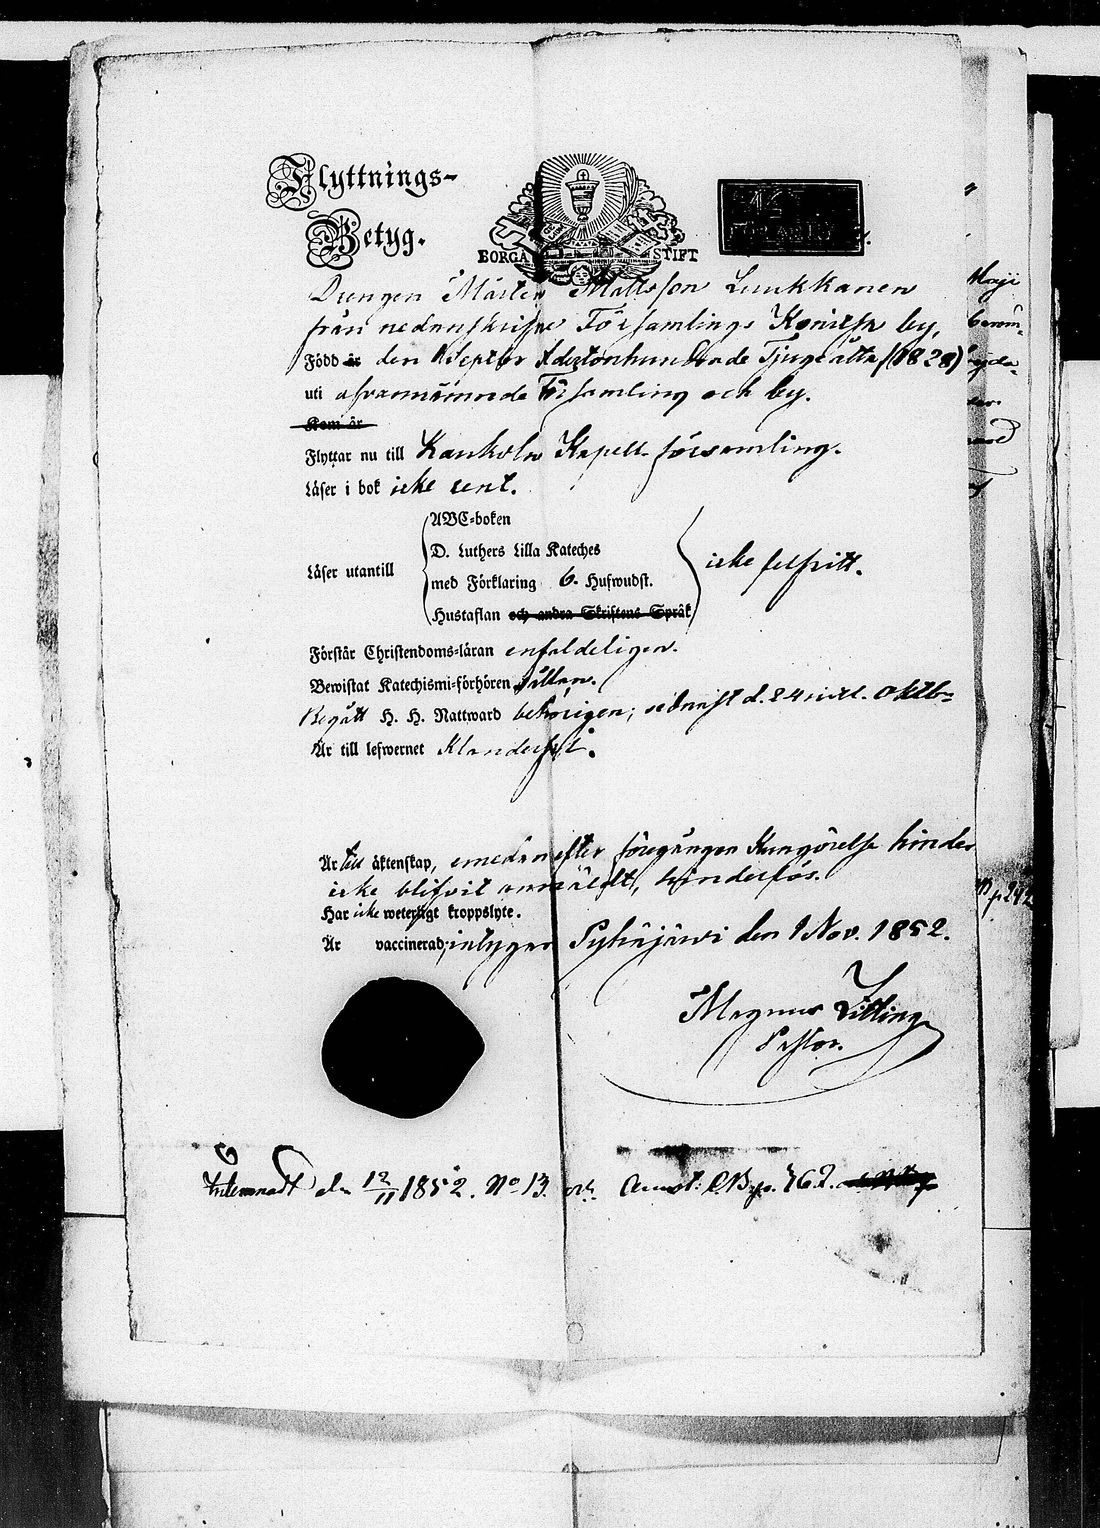 Flyttnings-
Betyg.
BORGÅ STIFT
Drengen Mårten Mattsson Luukkanen
från nedanskrifne Församlings by,
Född är den Septbr Adertonhundrade Tjugeåtta (1828)
uti ofvannämnde Församling och by.
Kom år
Flyttar nu till Kaukola Kapell församling.
Läser i bok icke rent.
ABC-boken
D. Luthers Lilla Kateches
Läser utantill med Förklaring 6. Hufwudst. icke felfritt.
Hustaflan och andra Skriftens Språk
Förstår Christendoms-läran enfaldeligen.
Bewistat Katechismi-förhören sällan.
Begått H. H. Nattward behörigen; sednast d. 24 sistl. Oktb-
Är till lefwernet Klanderfri.
Är till äktenskap, emedan efter föregången Kungörelse hinder
icke blifvit anmäldt, hinderlös.
Har icke weterligt kroppslyte.
Är vaccinerad; intygar Pyhäjärvi den 1 Nov. 1852.
Magnus Zitting
Pastor.
Inlemnadt den 12/11 1852. No 13. och Annot: C.B. p. 762.
p 292